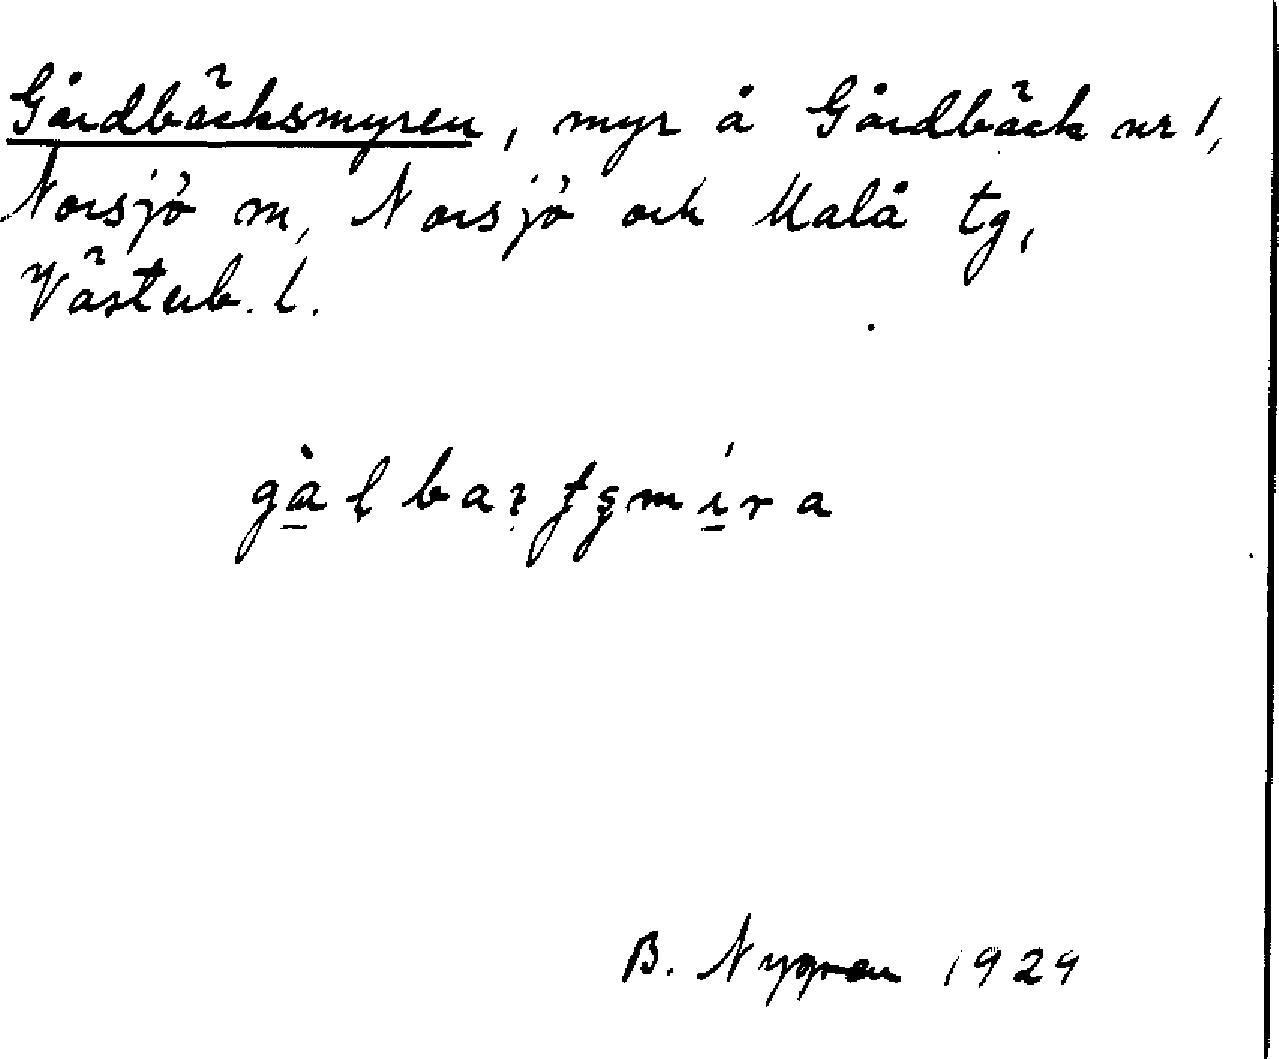 Gårdbäcksmyren, myr å Gårdbäck nr 1,
Norsjö sn, Norsjö och Malå tg,
Västerb. l.
B. Nygren 1929